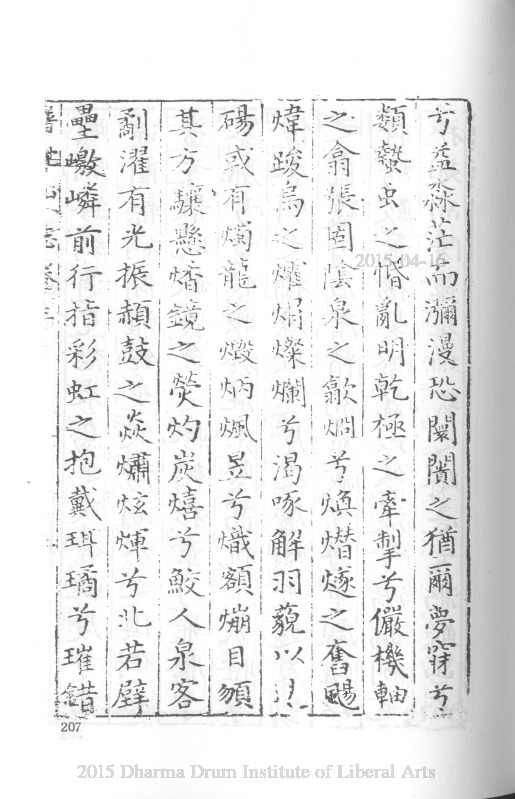 兮益淼茫而瀰漫恐闤闠之猶爾夢穽兮
類蟄虫之惛亂明乾極之牽掣兮儼機軸
之翕張固陰泉之歊焖兮煥熸燧之奮
煒踆烏之燿焆燦爛兮渴啄解羽藐以
碭或有燭龍之燬炳颩昱兮熾額熌目
其方驤懸熸鏡之熒灼炭熺兮鮫人泉客
濯有光振頳鼓之焱爞炫煇兮北若
壘嶔嶙前行指彩虹之抱戴珥璚兮璀錯
207
2015-04-16
2015 Dharma Drum Institute of Liberal Arts